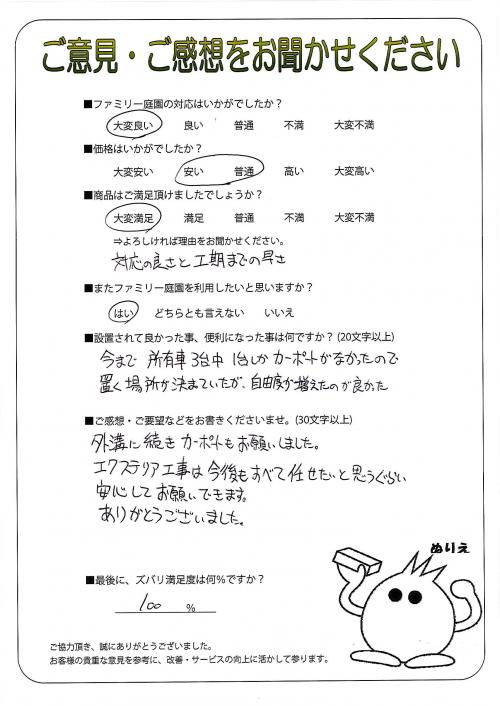 ご意見・ご感想をお聞かせください
■ファミリー庭園の対応はいかがでしたか？
大変良い 良い 普通 不満 大変不満
■価格はいかがでしたか？
大変安い 安い 普通 高い 大変高い
■商品はご満足頂けましたでしょうか？
大変満足 満足 普通 不満 大変不満
⇒よろしければ理由をお聞かせください。
対応の良さと工期までの早さ
■またファミリー庭園を利用したいと思いますか？
はい どちらとも言えない いいえ
■設置されて良かった事、便利になった事は何ですか？(20文字以上)
今まで 所有車3台中 1台しか カーポートがなかったので
置く場所が決まっていたが、自由度が増えたのが良かった
■ご感想・ご要望などをお書きくださいませ。(30文字以上)
外溝に続きカーポートもお願いしました。
エクステリア工事は今後もすべて任せたいと思うぐらい
安心してお願いできます。
ありがとうございました。
ぬりえ
■最後に、ズバリ満足度は何%ですか？
100 %
ご協力頂き、誠にありがとうございました。
お客様の貴重な意見を参考に、改善・サービスの向上に活かして参ります。